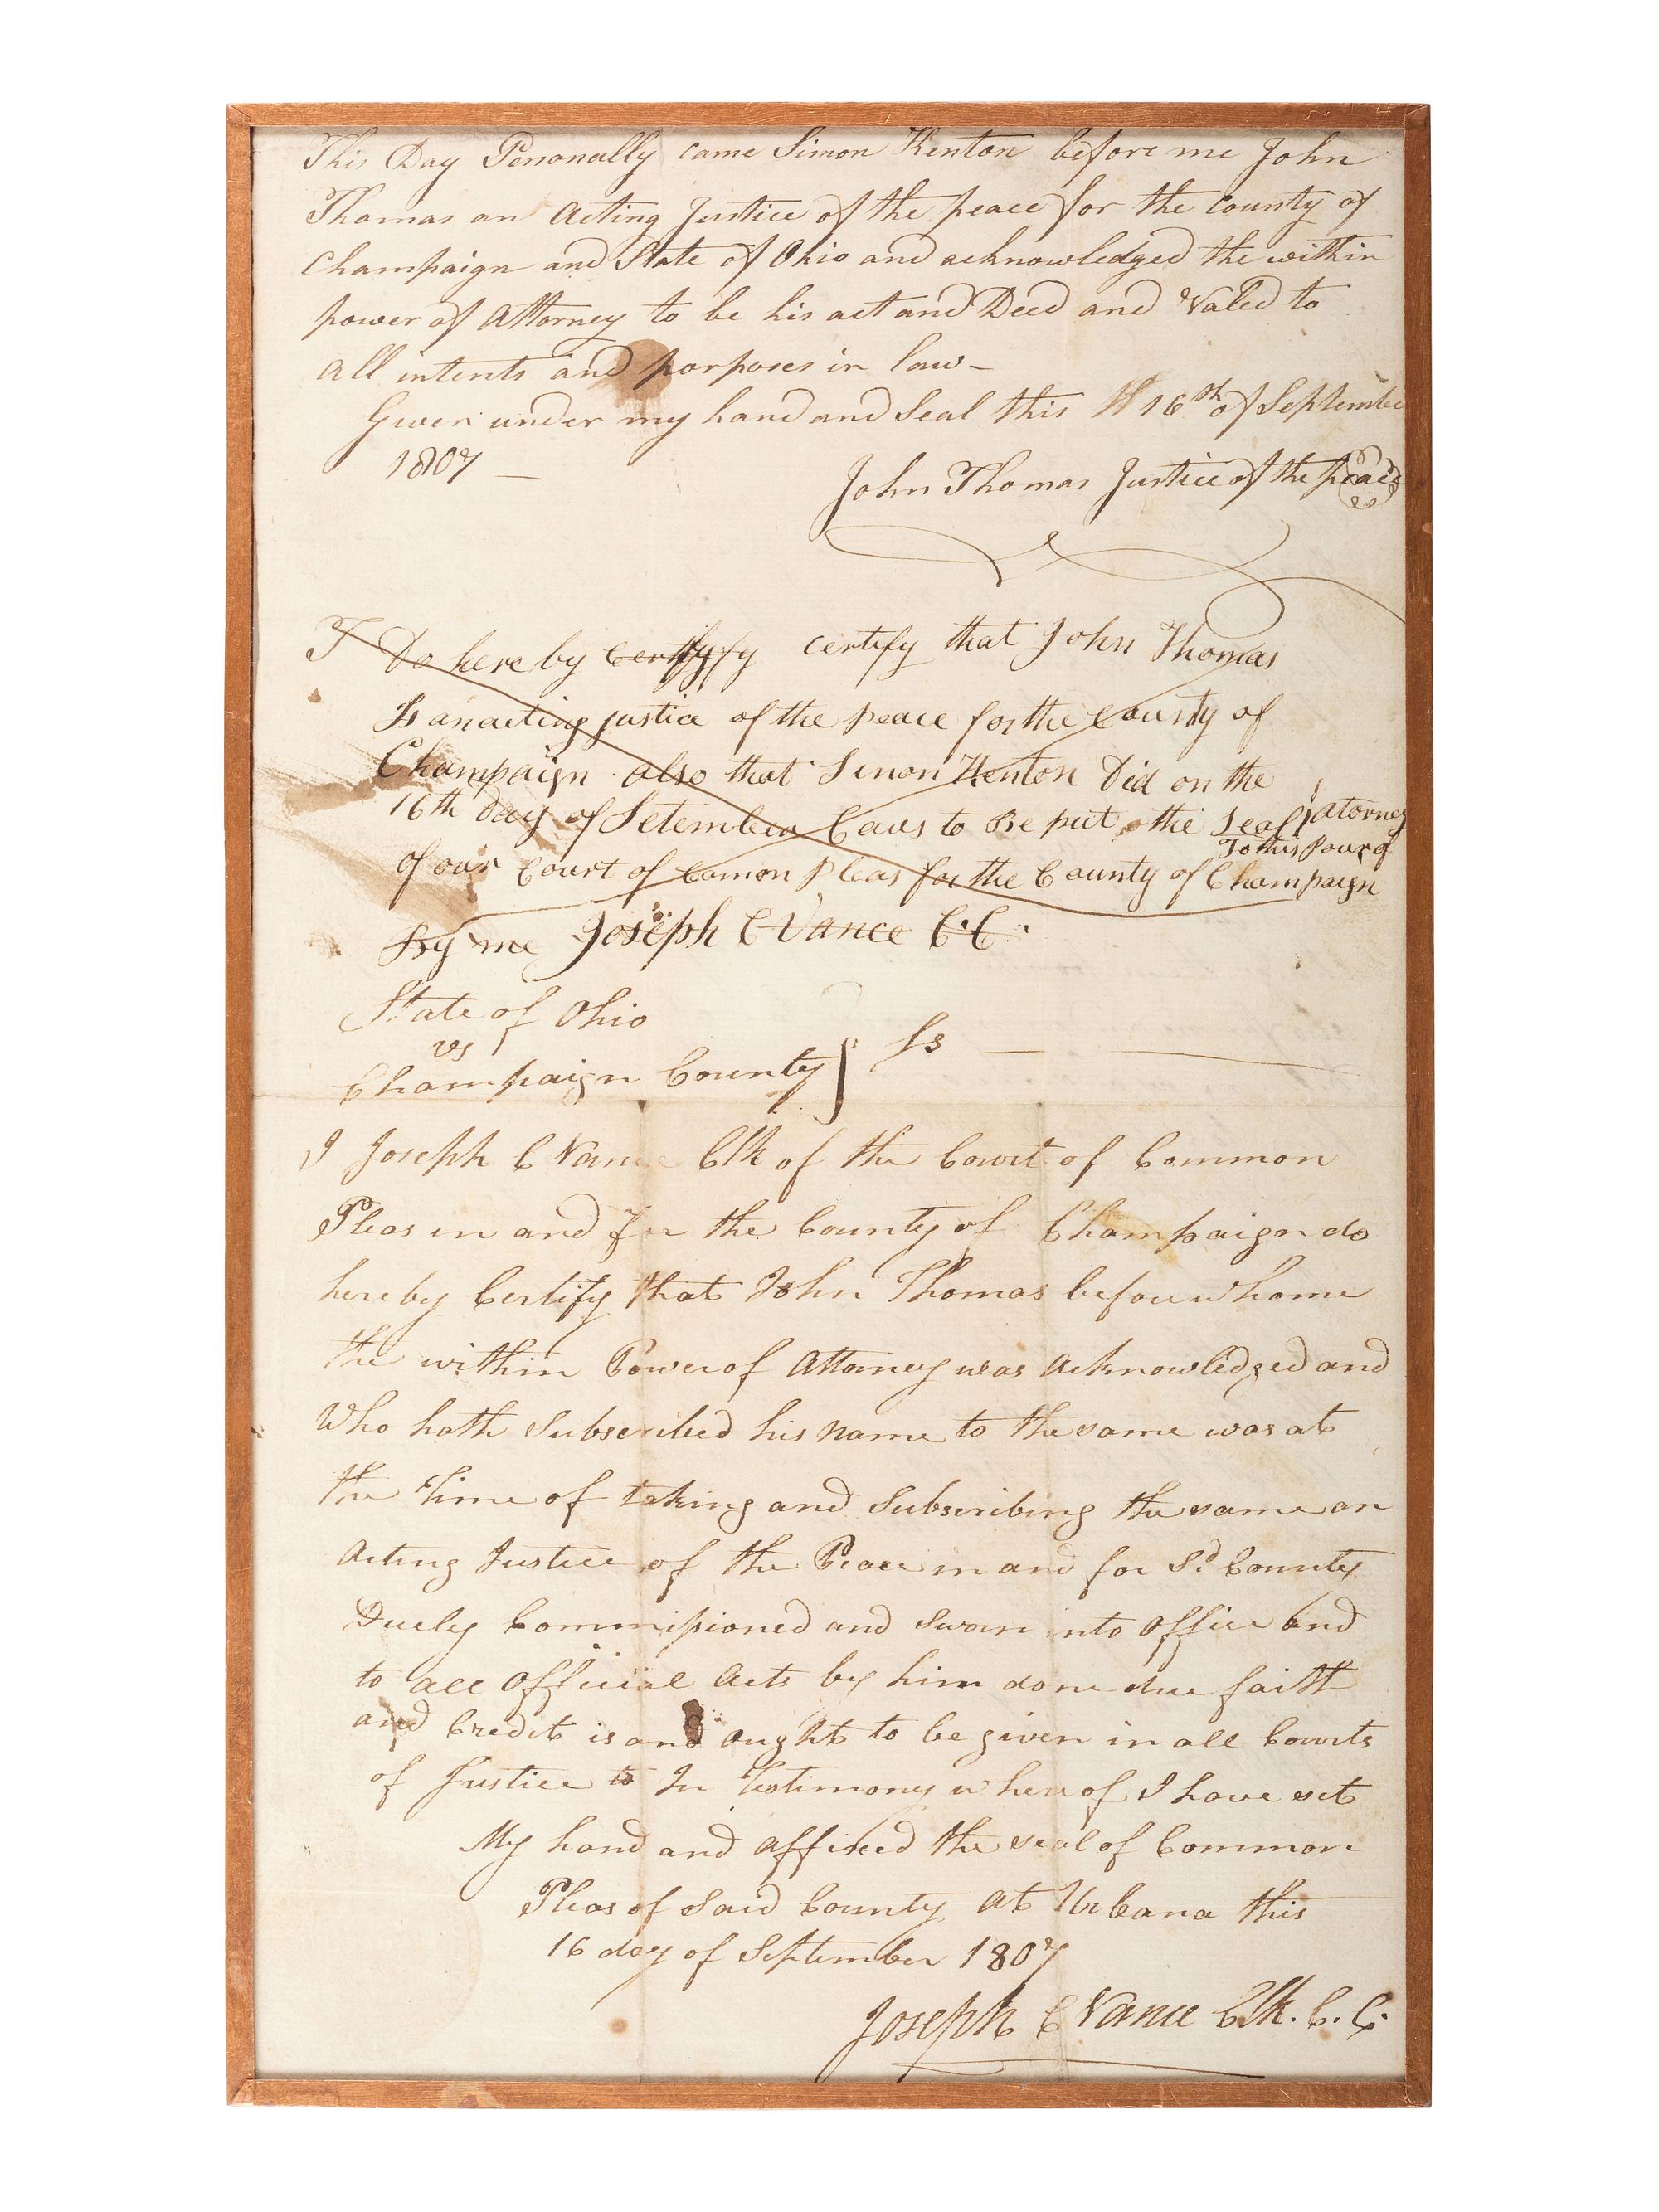 This Day Personally came Simon Kenton before me John
Thomas an Acting Justice of the peace for the County of
Champaign and State of Ohio and acknowledged the within
power of Attorney to be his act and Deed and Valed to
all intents and porposes in law –
Given under my hand and Seal this 16th of September
1807 –
John Thomas Justice of the peace
I Do here by certify that John Thomas
Is an acting justice of the peace for the County of
Champaign also that Simon Kenton Did on the
16th Day of Setember Caus to Be put the Seal
Atorney
To this Pour of
of our Court of Comon Pleas for the County of Champaign
By me Joseph C Vance C.C.
State of Ohio
vs
Champaign County } Ss
I Joseph C Vance Clk of the Court of Common
Pleas in and for the County of Champaign do
hereby Certify that John Thomas before whome
the within Power of Attorney was Acknowledged and
Who hath Subscribed his name to the same was at
the Time of taking and Subscribing the same an
Acting Justice of the Peace in and for Sd County
Duely Commissioned and Sworn into Office and
to all Official Acts by him done due faith
and Credit is and ought to be given in all Courts
of Justice In Testimony whereof I have set
My hand and affixed the seal of Common
Pleas of Said County at Urbana this
16 day of September 1807
Joseph C Vance Clk. C. C.